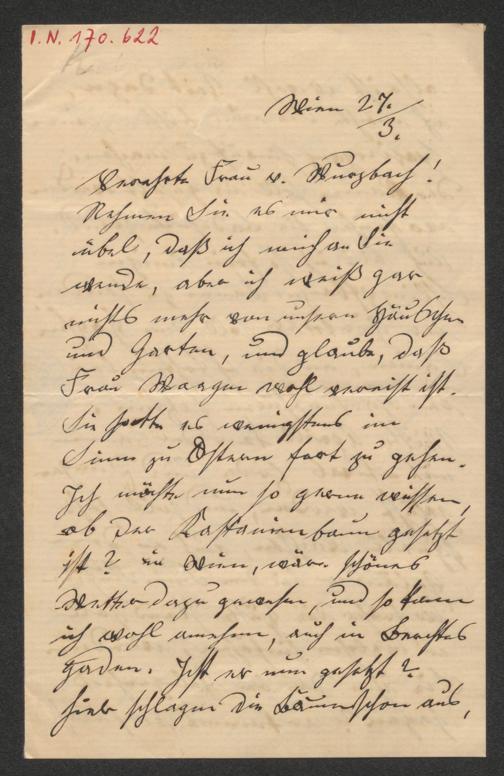 I.N. 170.622
Wien 27./3.
Verehrte Frau v. Wurzbach!
Nehmen Sie es mir nicht
übel, daß ich mich an Sie
wende, aber ich weiß gar
nichts mehr von unserm Häuschen
und Garten, und glaube, daß
Frau Waagen wohl verreist ist.
Sie hatte es wenigstens im
Sinn zu Ostern fort zu gehen.
Ich möchte nun so gerne wissen,
ob der Kastanienbaum gesetzt
ist? in Wien, wär schönes
Wetter dazu gewesen, und so kann
ich wohl annehmen, auch in Berchtes
gaden. Ist er nun gesetzt?
hier schlagen die Bäume schon aus,